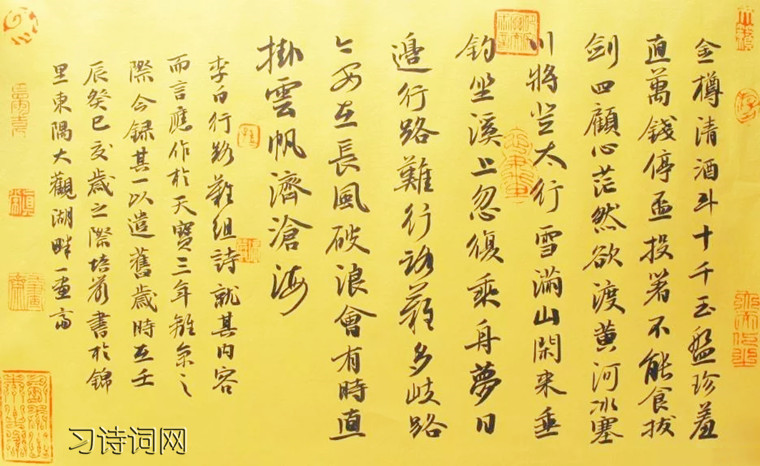 金樽清酒斗十千玉盤珍羞
直萬錢停盃投箸不能食拔
劍四顧心茫然欲渡黃河冰塞
川將登太行雪滿山閑來垂
釣坐溪上忽復乘舟夢日
邊行路難行路難多岐路
今安在長風破浪會有時直
掛雲帆濟滄海
李白行路難組詩就其內容
而言應作於天寶三年離京之
際今録其一以遣舊歲時在壬
辰癸巳交歲之際培書於錦
里東隅大觀湖畔一畫
习诗词网